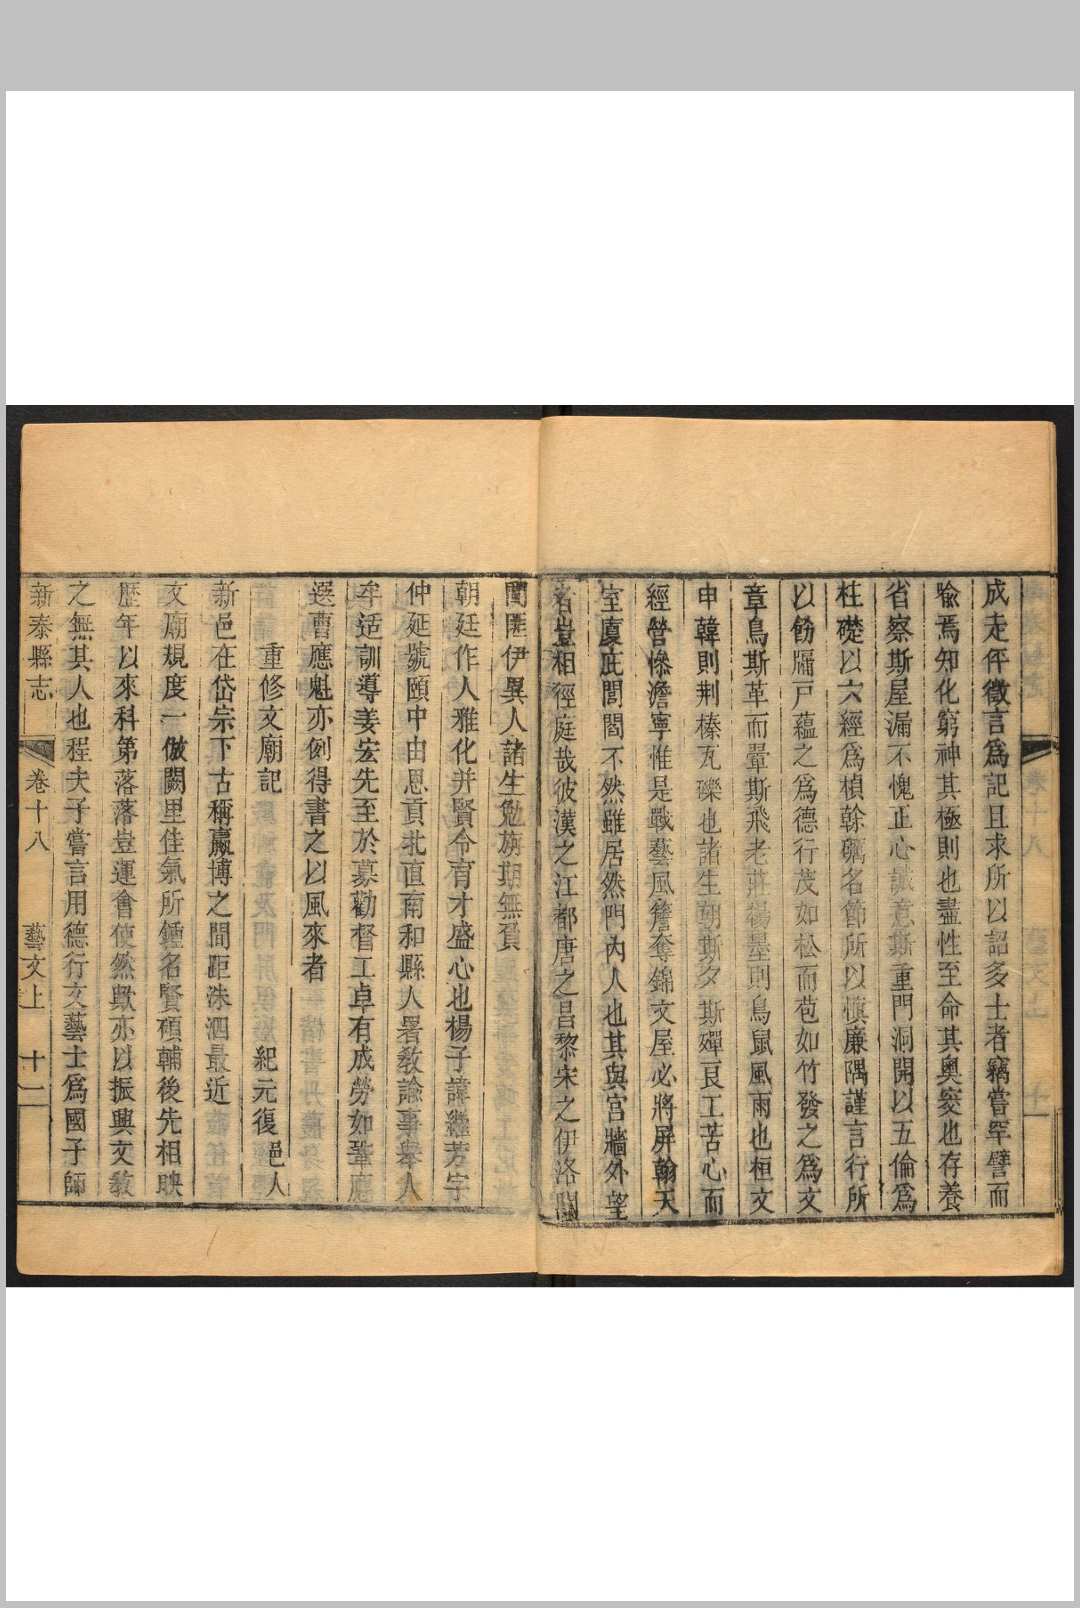 成走伻徵言爲記且求所以詔多士者竊嘗罕譬而
喻焉知化窮神其極則也盡性至命其奧窔也存養
省察斯屋漏不愧正心誠意斯重門洞開以五倫爲
柱礎以六經爲楨榦礪名節所以慎廉隅謹言行所
以飭牖戸蘊之爲德行茂如松而苞如竹發之爲文
章鳥斯革而翬斯飛老莊楊墨則鳥鼠風雨也桓文
申韓則荆榛瓦礫也諸生朝斯夕斯殫良工苦心而
經營慘澹寧惟是戰藝風簷奪錦文屋必將屏翰天
室廈庇閭閻不然雖居然門內人也其與宮牆外望
者豈相徑庭哉彼漢之江都唐之昌黎宋之伊洛關
閩匪伊異人諸生勉旃期無負
朝廷作人雅化并賢令育才盛心也楊子諱繼芳字
仲延號頤中由恩貢北直南和縣人署教諭事舉人
牟适訓導姜宏先至於募勸督工卓有成勞如鞏應
選曹應魁亦例得書之以風來者
重修文廟記　　紀元復邑人
新邑在岱宗下古稱嬴博之間距洙泗最近
文廟規度一倣闕里佳氣所鍾名賢碩輔後先相映
歷年以來科第落落豈運會使然歟亦以振興文教
之無其人也程夫子嘗言用德行文藝士爲國子師
新泰縣志　卷十八　藝文上　十一